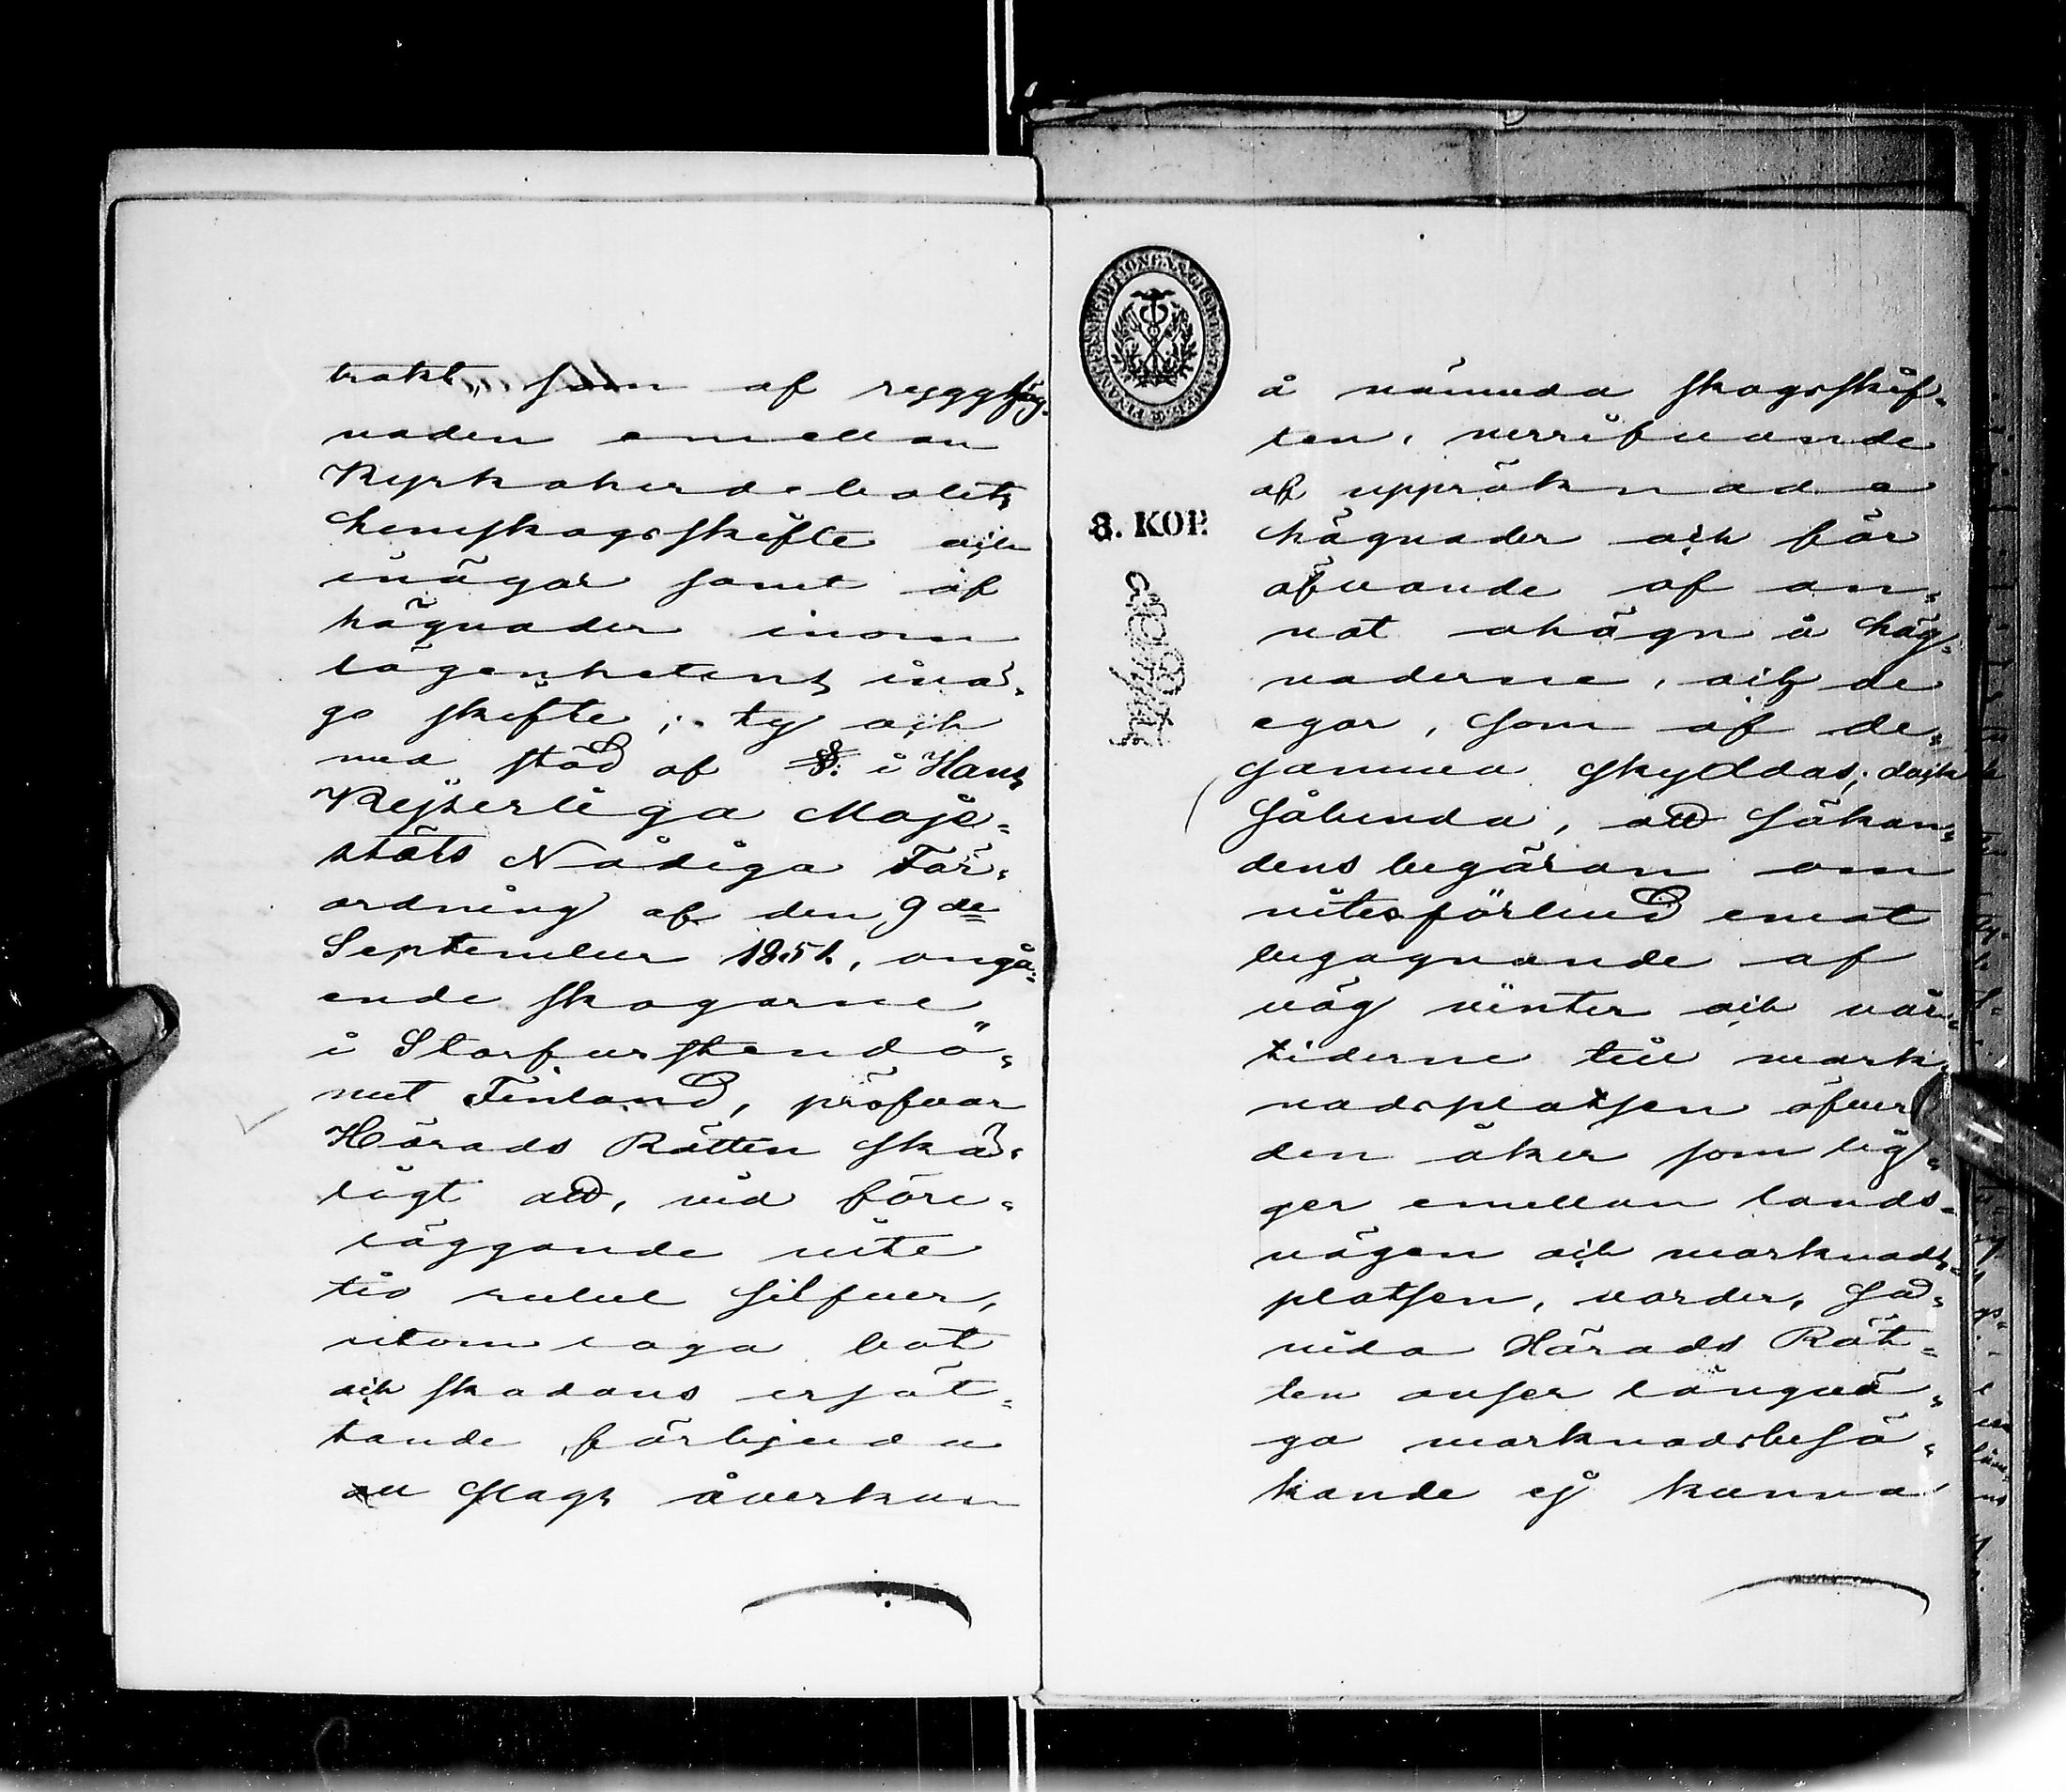 trakt, som af rygghäg-
naden emellan
Kyrkoherdebolets
hemskogsskifte och
inägor samt af
hägnader inom
lägenhetens inä-
go skifte; ty och
med stöd af §: i Hans
Kejserliga Maje-
stäts Nådiga För-
ordning af den 9de
September 1851, angå-
ende skogarne
i Storfurstendö-
met Finland, pröfvar
Härads Rätten skä-
ligt att, vid före-
läggande vite
tio rubel silfver,
utom laga bot
och skadans ersät-
tande, förbjuda
all slags åverkan
å nämnda skogsskif-
ten, nerrifvande
af uppräknade
hägnader och för
öfvande af an-
nat ohägn å häg-
naderne, och de
egor, som af de-
samma skyddas; dock
sålunda, att sökan-
dens begäran om
vitesförbud emot
begagnande af
väg vinter och vår-
tiderne till mark-
nadsplatsen öfver
den åker som lig-
ger emellan lands-
vägen och marknads-
platsen, varder, så-
vida Härads Rät-
ten anser långvä-
ga marknadsbesö-
kande ej kunna
8. KOP.